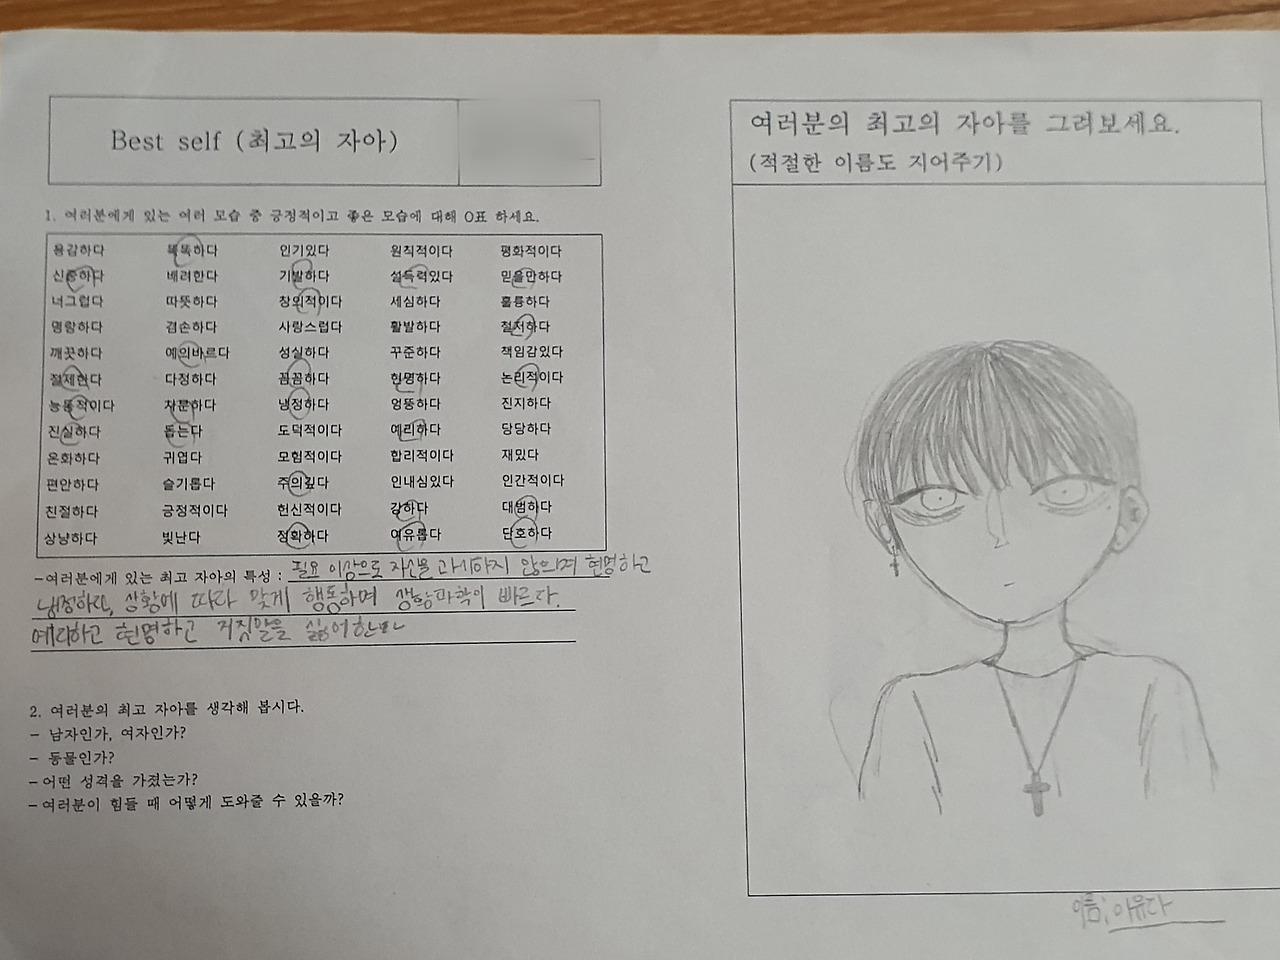 Best self (최고의 자아)
1. 여러분에게 있는 여러 모습 중 긍정적이고 좋은 모습에 대해 O표 하세요.
용감하다 똑똑하다 인기있다 원칙적이다 평화적이다
신중하다 배려한다 기발하다 설득력있다 믿을만하다
너그럽다 따뜻하다 창의적이다 세심하다 훌륭하다
명랑하다 겸손하다 사랑스럽다 활발하다 철저하다
깨끗하다 예의바르다 성실하다 꾸준하다 책임감있다
절제한다 다정하다 꼼꼼하다 현명하다 논리적이다
능동적이다 차분하다 냉정하다 엉뚱하다 진지하다
진실하다 돕는다 도덕적이다 예리하다 당당하다
온화하다 귀엽다 모험적이다 합리적이다 재밌다
편안하다 슬기롭다 주의깊다 인내심있다 인간적이다
친절하다 긍정적이다 헌신적이다 강하다 대범하다
상냥하다 빛난다 정확하다 여유롭다 단호하다
-여러분에게 있는 최고 자아의 특성 : 필요 이상으로 자신을 과시하지 않으며 현명하고
냉정하고, 상황에 따라 맞게 행동하며 상황파악이 빠르다.
예리하고 현명하고 거짓말을 싫어한다
2. 여러분의 최고 자아를 생각해 봅시다.
- 남자인가, 여자인가?
- 동물인가?
- 어떤 성격을 가졌는가?
- 여러분이 힘들 때 어떻게 도와줄 수 있을까?
여러분의 최고의 자아를 그려보세요.
(적절한 이름도 지어주기)
이름: